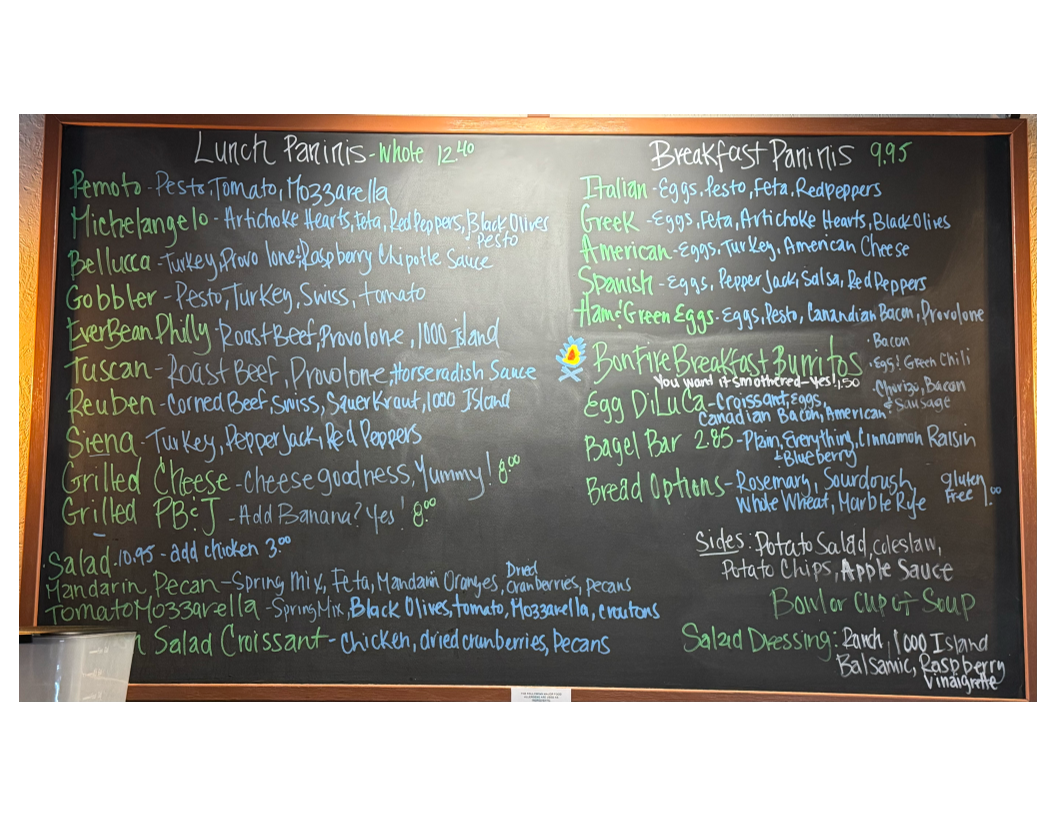 Lunch Paninis - Whole 12.40
Pemoto - Pesto, Tomato, Mozzarella
Michelangelo - Artichoke Hearts, Feta, Red Peppers, Black Olives
Pesto
Bellucca - Turkey, Provolone, Raspberry Chipotle Sauce
Gobbler - Pesto, Turkey, Swiss, tomato
EverBean Philly - Roast Beef, Provolone, 1000 Island
Tuscan - Roast Beef, Provolone, Horseradish Sauce
Reuben - Corned Beef, Swiss, SauerKraut, 1000 Island
Siena - Turkey, Pepper Jack, Red Peppers
Grilled Cheese - Cheese goodness, Yummy! 8.00
Grilled PB&J - Add Banana? Yes! 8.00
Salad - 10.95 - add chicken 3.00
Mandarin Pecan - Spring Mix, Feta, Mandarin Oranges, Dried Cranberries, pecans
Tomato Mozzarella - Spring Mix, Black Olives, tomato, Mozzarella, croutons
Salad Croissant - Chicken, dried cranberries, Pecans
Breakfast Paninis 9.95
Italian - Eggs, Pesto, Feta, Red peppers
Greek - Eggs, Feta, Artichoke Hearts, Black Olives
American - Eggs, Turkey, American Cheese
Spanish - Eggs, Pepper Jack, Salsa, Red Peppers
Ham & Green Eggs - Eggs, Pesto, Canandian Bacon, Provolone
Bonfire Breakfast Burritos
You want it smothered - yes! 1.50
· Bacon
· Egg & Green Chili
· Chorizo, Bacon
& Sausage
Egg DiLuCa - Croissant, Eggs,
Canadian Bacon, American
Bagel Bar 2.85 - Plain, Everything, Cinnamon Raisin
+ Blueberry
Bread Options - Rosemary, Sourdough
Whole Wheat, Marble Rye
gluten
Free 1.00
Sides: Potato Salad, Coleslaw,
Potato Chips, Apple Sauce
Bowl or Cup of Soup
Salad Dressing: Ranch, 1000 Island
Balsamic, Raspberry
Vinaigrette